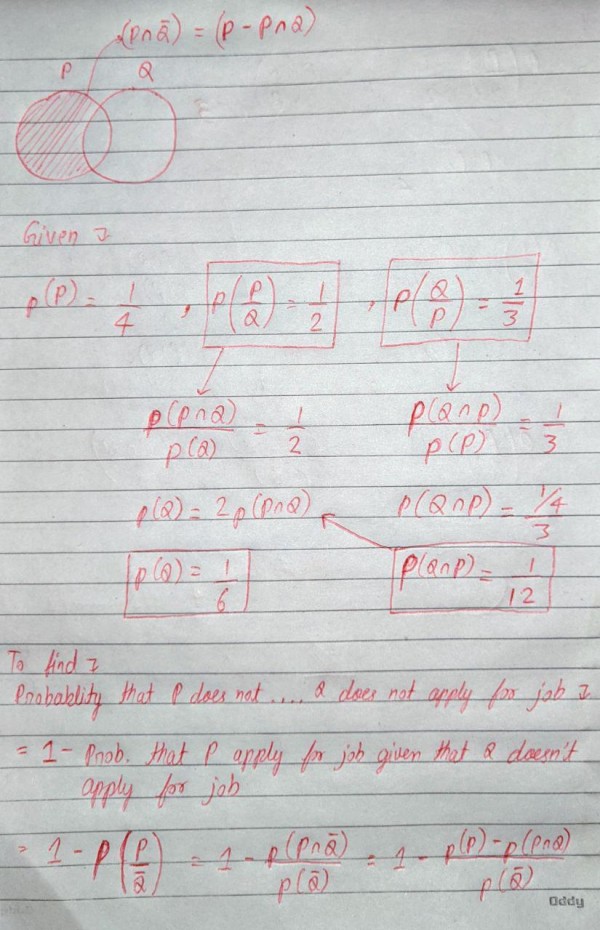 (P∩Q̄) = (P - P∩Q)
P Q
Given :
P(P) = 1/4 , P(P/Q) = 1/2 , P(Q/P) = 1/3
P(P∩Q)/P(Q) = 1/2 P(Q∩P)/P(P) = 1/3
P(Q) = 2P(P∩Q) P(Q∩P) = 1/4/3
P(Q) = 1/6 P(Q∩P) = 1/12
To find :
Probablity that P does not .... Q does not apply for job :
= 1 - Prob. that P apply for job given that Q doesn't
apply for job
= 1 - P(P/Q̄) = 1 - P(P∩Q̄)/P(Q̄) = 1 - P(P)-P(P∩Q)/P(Q̄)
Oddy